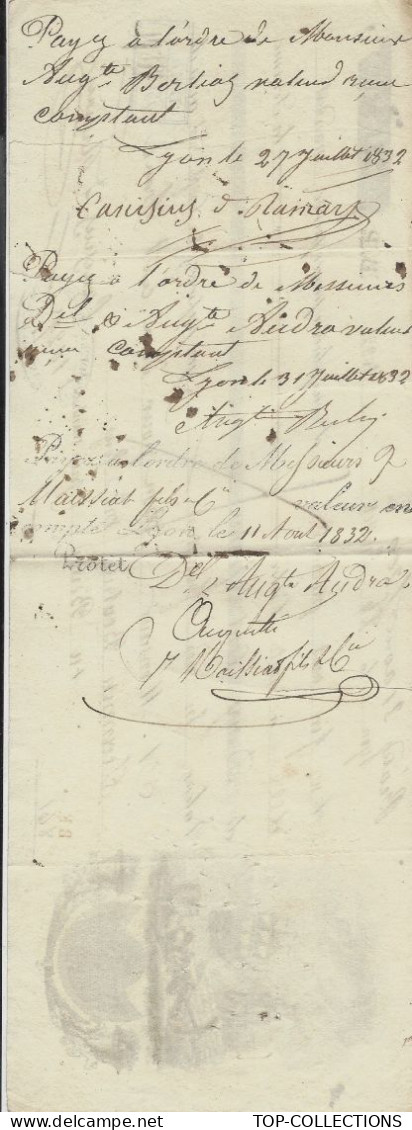 Payez à l'ordre de Monsieur
Aug.te Berlioz valeur reçue
comptant
Lyon le 27 Juillet 1832
Payez à l'ordre de Messieurs
Del & Aug.te Audra valeur
reçue comptant
Lyon le 31 Juillet 1832
Payez à l'ordre de Messieurs J
Maissiat fils & Cie valeur en
compte Lyon, le 11 Aout 1832.
Protet Del & Augte Audra
J Maissiat fils & Cie
TOP-COLLECTIONS